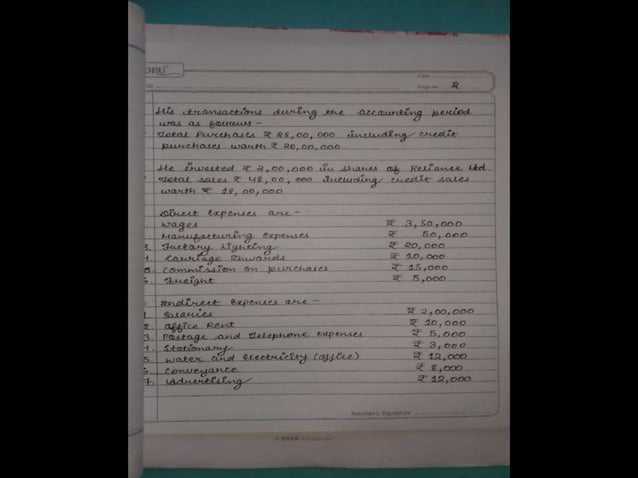 Page No. 2
His transactions during the accounting period
was as follows -
Total Purchases ₹ 28,00,000 including credit
purchases worth ₹ 20,00,000
He invested ₹ 2,00,000 in shares of Reliance Ltd.
Total sales ₹ 48,00,000 including credit sales
worth ₹ 28,00,000
Direct Expenses are -
Wages ₹ 3,50,000
Manufacturing Expenses ₹ 50,000
3. Factory Lighting ₹ 20,000
4. Carriage Inwards ₹ 10,000
5. Commission on purchases ₹ 15,000
6. Freight ₹ 5,000
Indirect Expenses are -
1. Salaries ₹ 2,00,000
2. Office Rent ₹ 20,000
3. Postage and Telephone Expenses ₹ 5,000
4. Stationary ₹ 3,000
5. Water and Electricity (office) ₹ 12,000
6. Conveyance ₹ 8,000
7. Advertising ₹ 12,000
Teacher's Signature
TATA